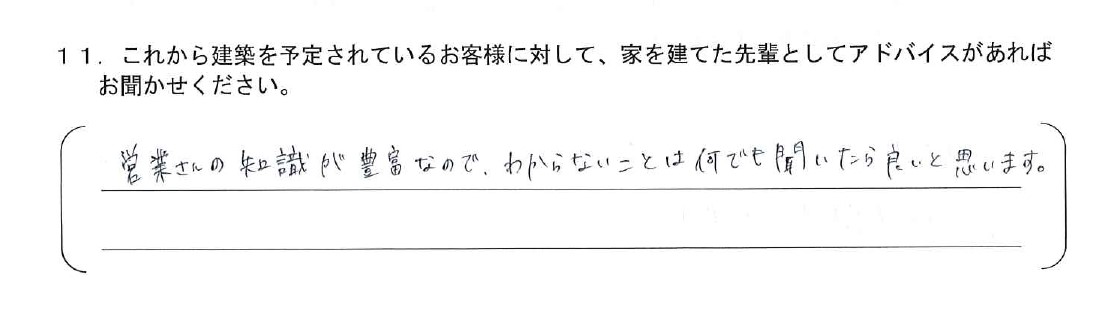 １１．これから建築を予定されているお客様に対して、家を建てた先輩としてアドバイスがあれば
お聞かせください。
営業さんの知識が豊富なので、わからないことは何でも聞いたら良いと思います。